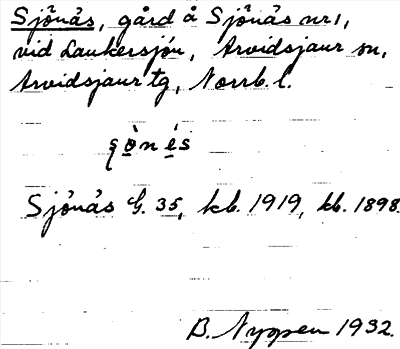 Sjönås, gård å Sjönås nr 1,
vid Laukersjön, Arvidsjaur sn,
Arvidsjaur tg, Norrb. l.
Sjönås G. 35, kb. 1919, kb. 1898.
B. Nygren 1932.